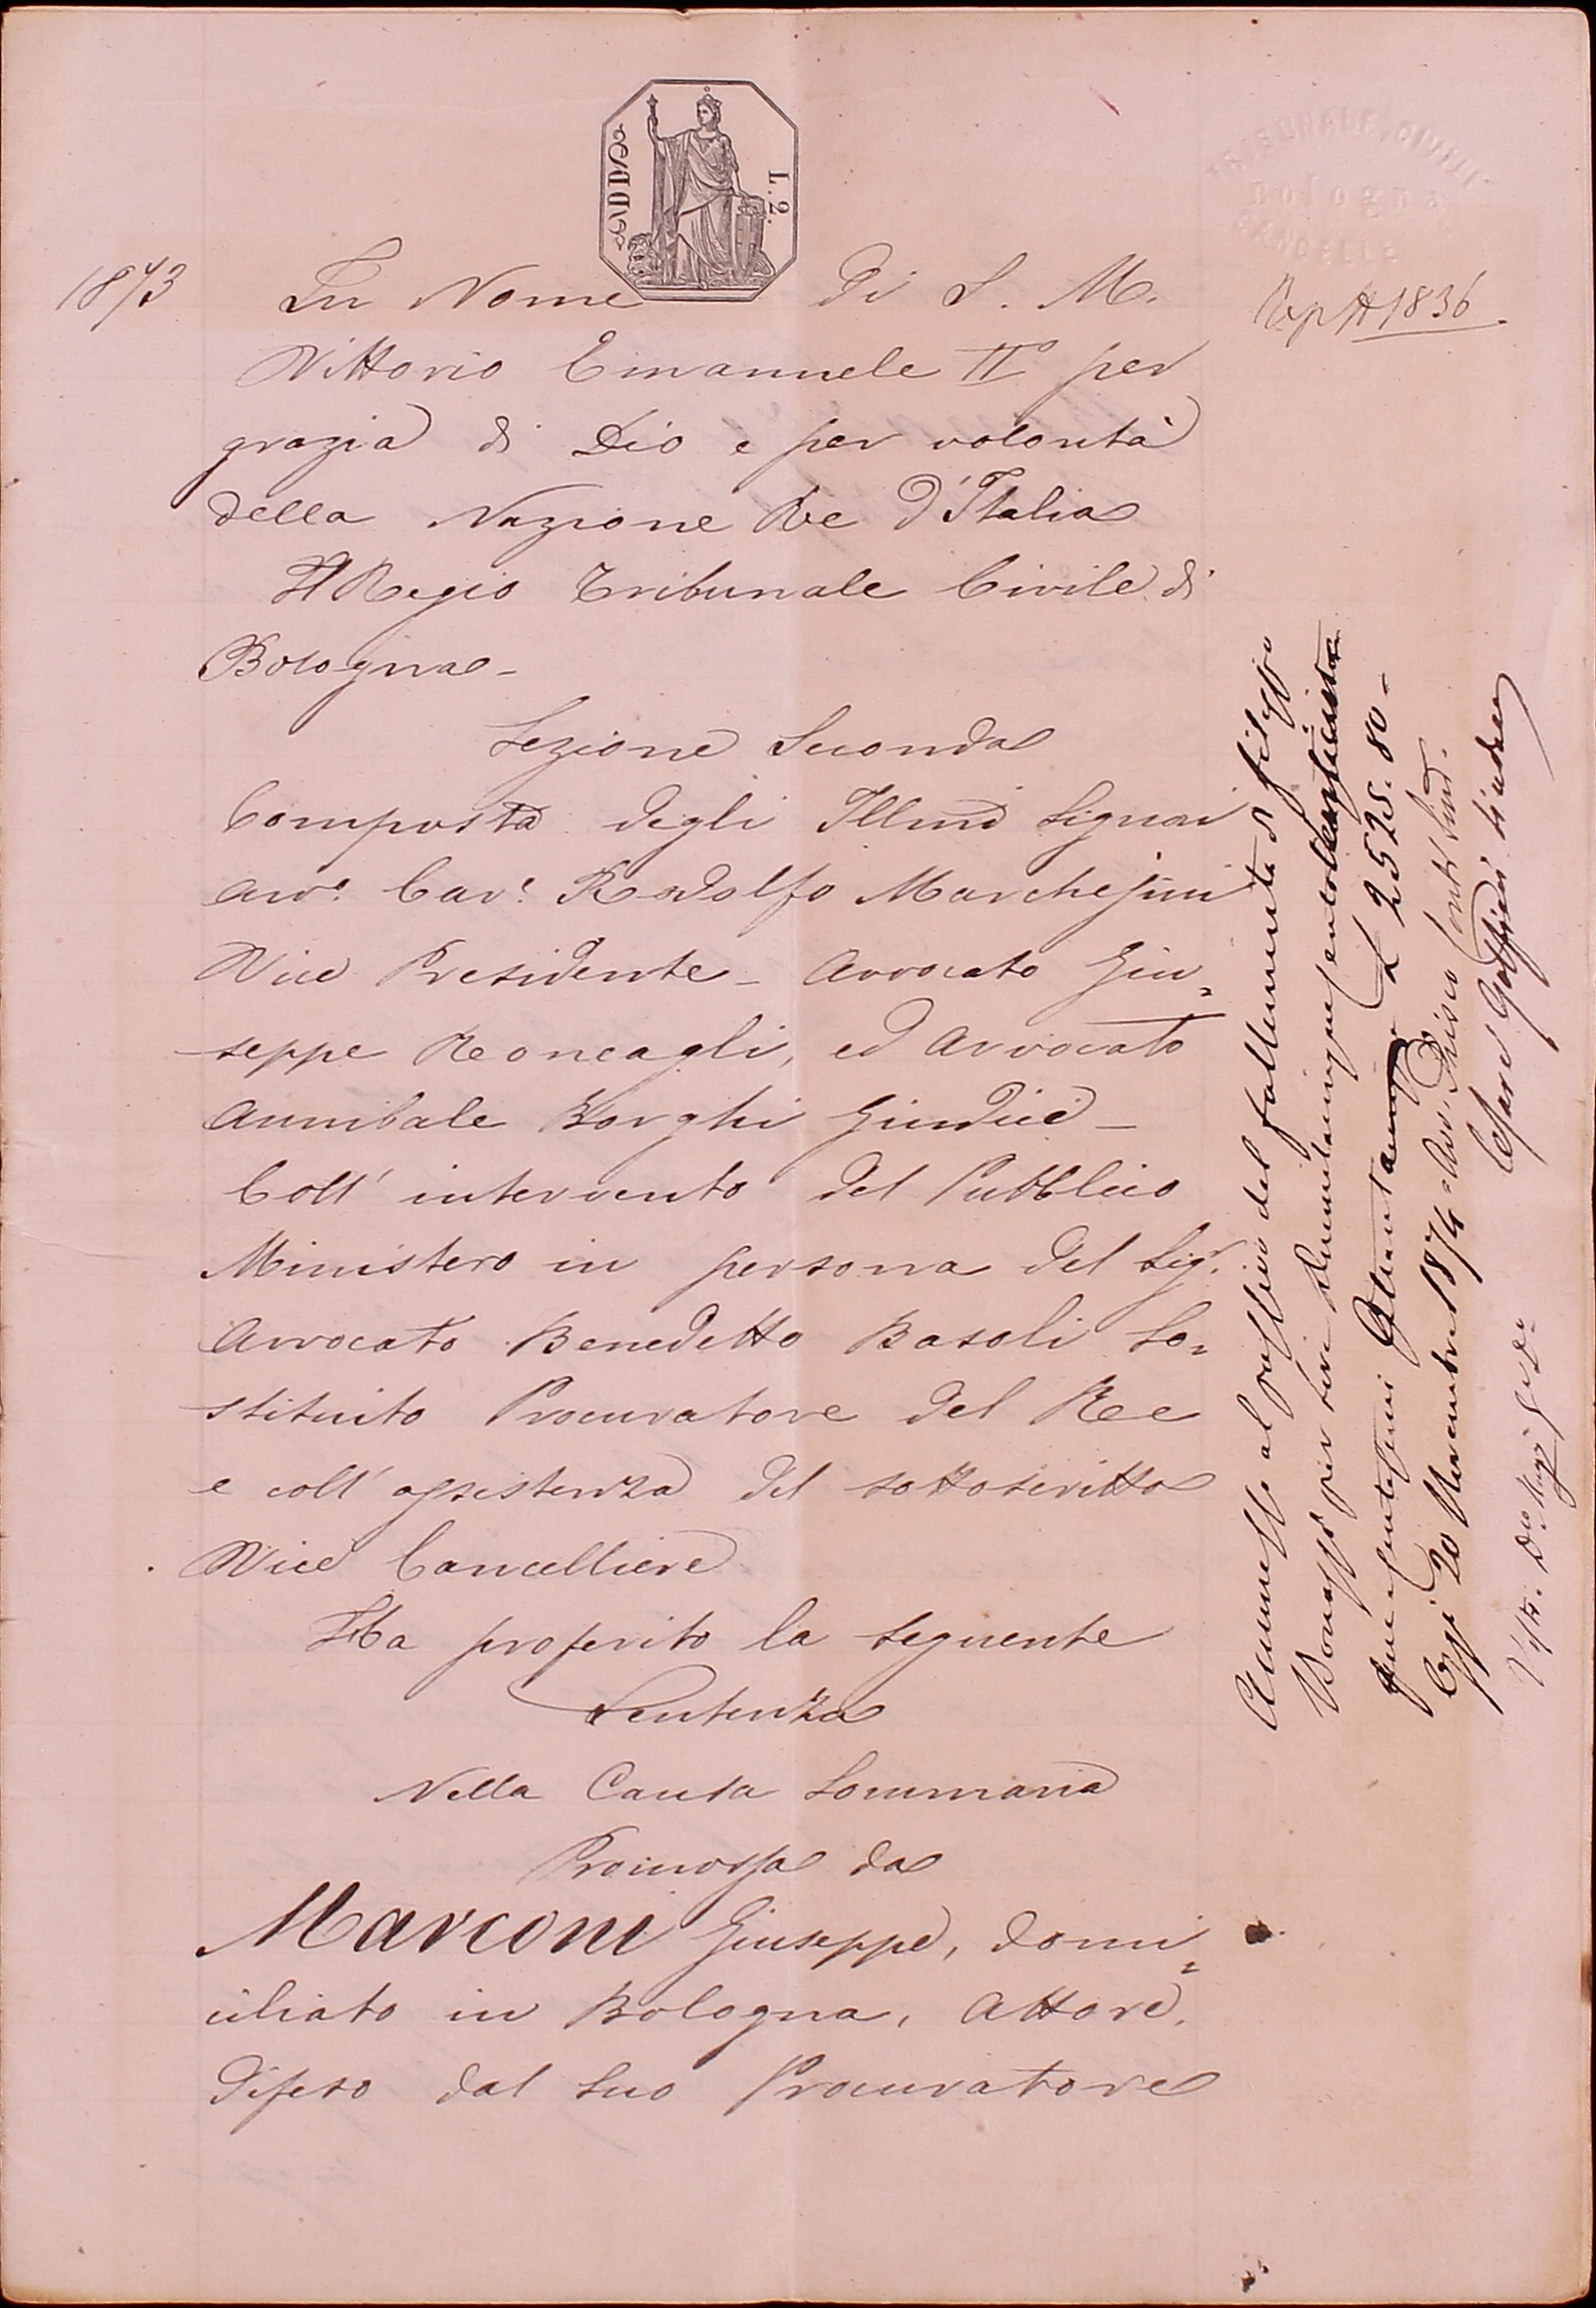 L. 2.
TRIBUNALE CIVILE
Bologna
CANCELLE
1873
In Nome di S. M.
Rep № 1836
Vittorio Emanuele II per
grazia di Dio e per volontà
della Nazione Re d'Italia
Il Regio Tribunale Civile di
Bologna -
Sezione Seconda
Composta degli Illmi Signori
Avv.º Cav.º Rodolfo Marchesini
Vice Presidente - Avvocato Giu=
seppe Reoncagli, ed Avvocato
Annibale Borghi Giudici -
Coll' intervento del Pubblico
Ministero in persona del Sigr.
Avvocato Benedetto Basoli So=
stituito Procuratore del Re
e coll' assistenza del sottoscritto
Vice Cancelliere
Ha proferito la seguente
Sentenza
Nella Causa Sommaria
Promossa da
Marconi Giuseppe, domi=
ciliato in Bologna, Attore,
difeso dal suo Procuratore
Ammesso al passivo del fallimento di Filippo
per lire duemilacinquecento
que e centesimi Ottanta L 2525. 80 -
Oggi 20 Novembre 1874
Cesare